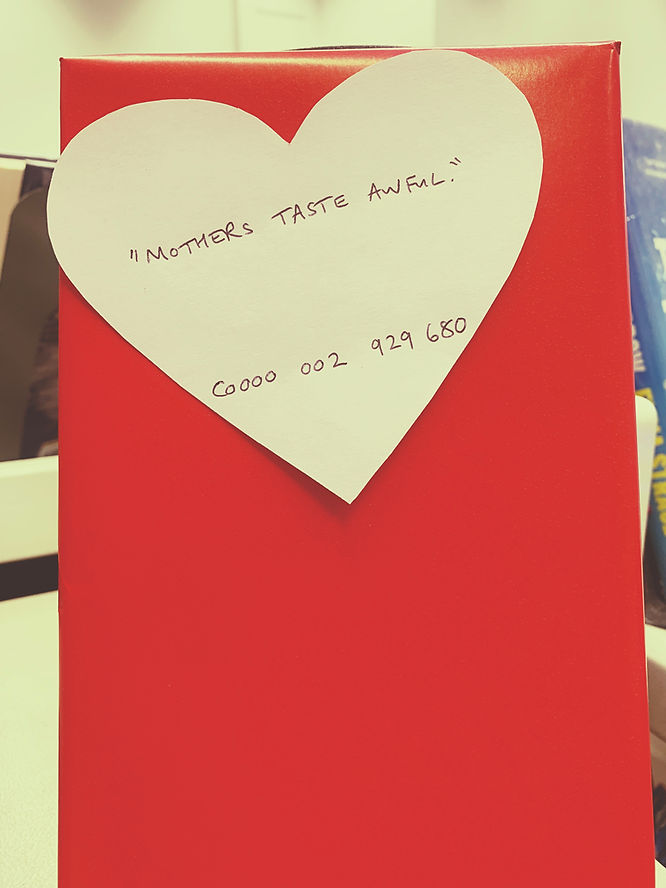 "MOTHERS TASTE AWFUL."
C0000 002 929 680